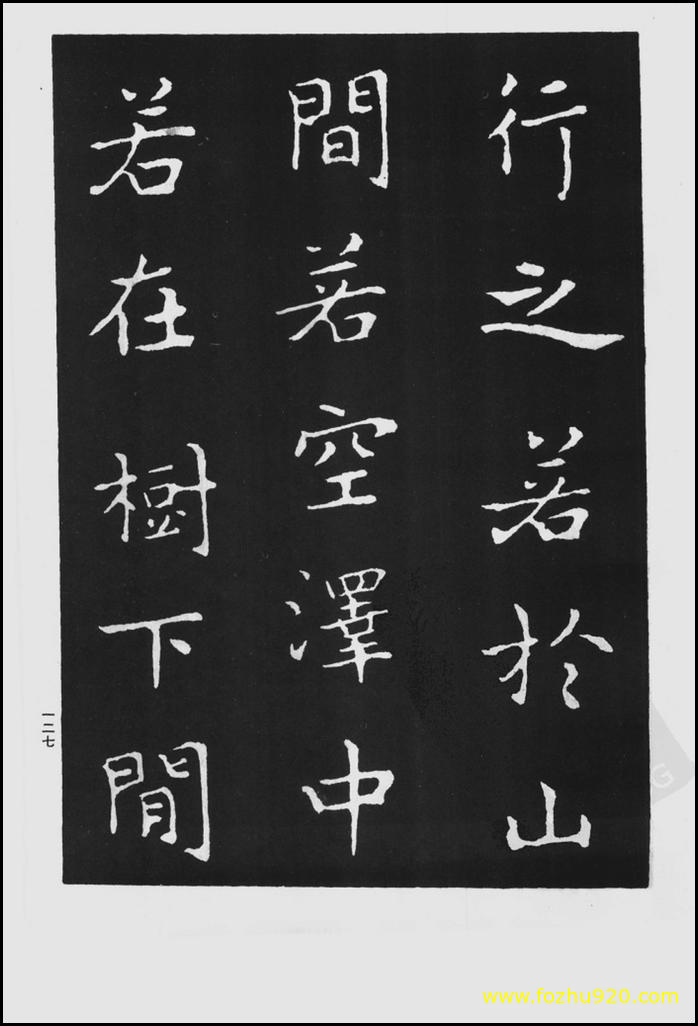 行之若於山
間若空澤中
若在樹下閒
一二七
www.fozhu920.com